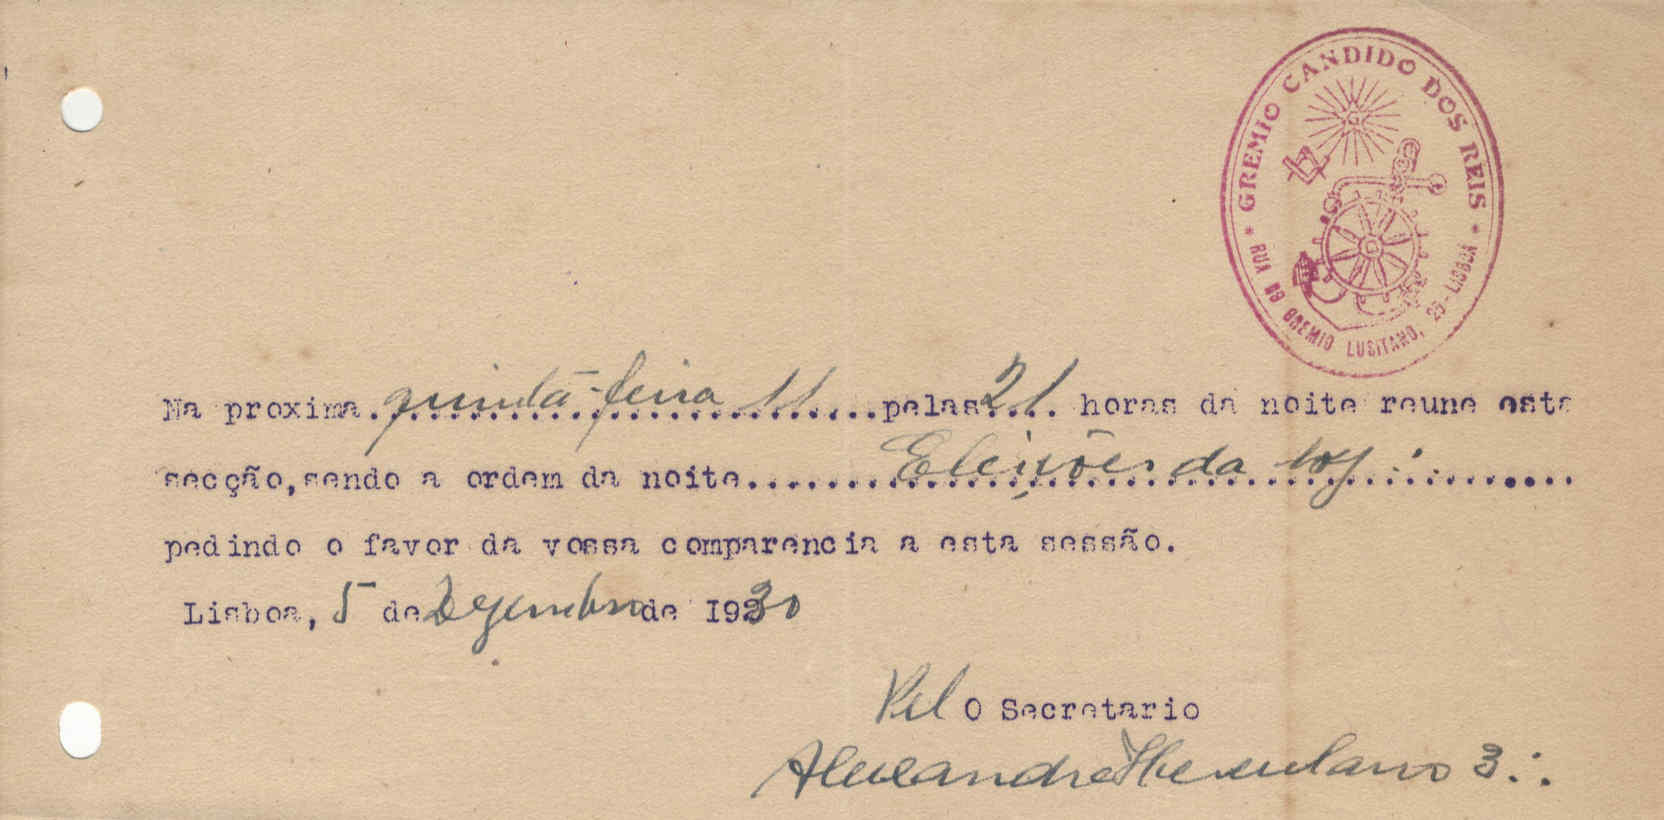 GREMIO CANDIDO DOS REIS
* RUA DO GREMIO LUSITANO, 25 - LISBOA *
G
Na proxima quinta-feira 11 pelas 21 horas da noite reune esta
secção, sendo a ordem da noite Eleições da
pedindo o favor da vossa comparencia a esta sessão.
Lisboa, 5 de Dezembro de 1930
Pel O Secretario
Alexandre Herculano 3∴